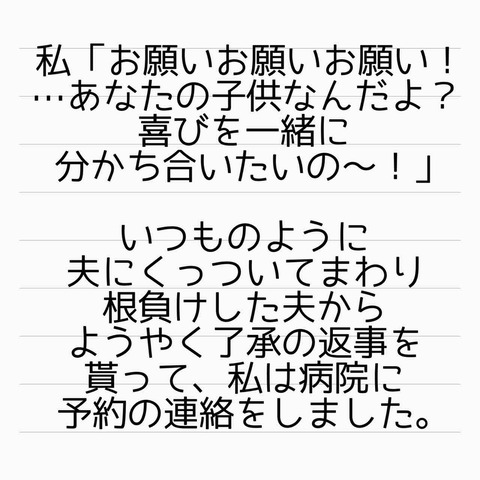 私「お願いお願いお願い！
…あなたの子供なんだよ？
喜びを一緒に
分かち合いたいの〜！」
いつものように
夫にくっついてまわり
根負けした夫から
ようやく了承の返事を
貰って、私は病院に
予約の連絡をしました。